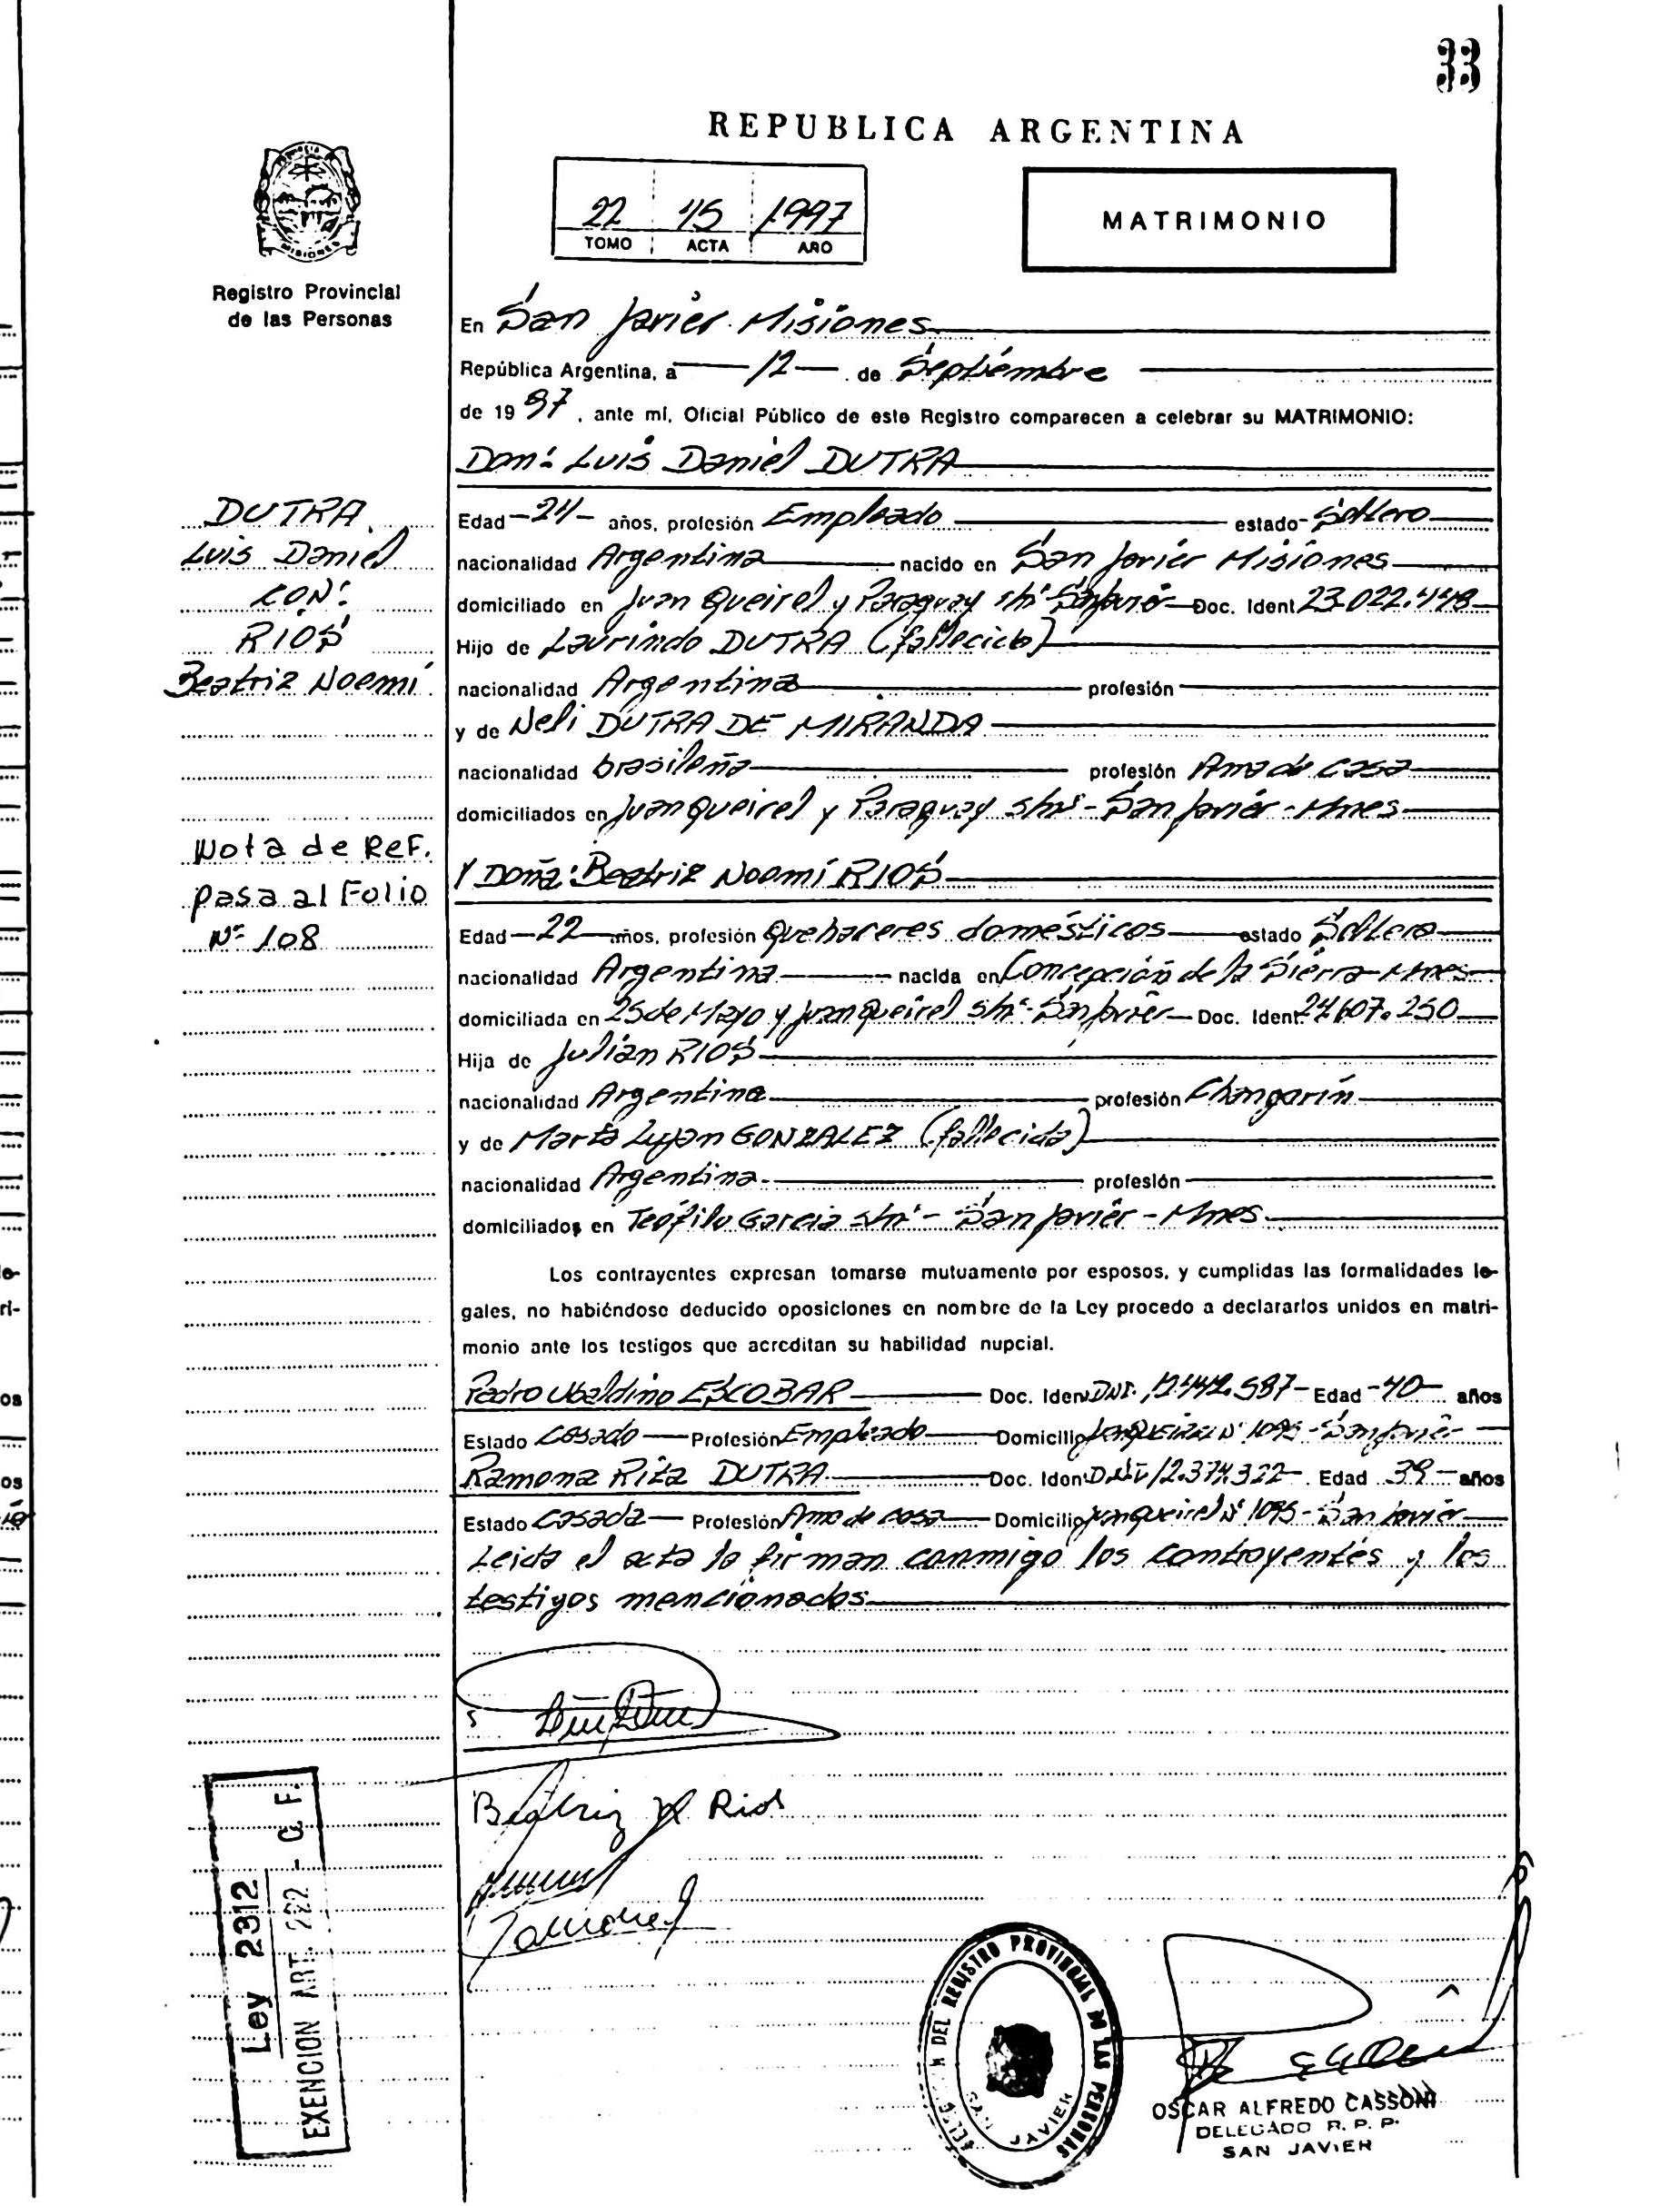 33
REPUBLICA ARGENTINA
22 45 1997
TOMO ACTA AÑO
MATRIMONIO
MISIONES
Registro Provincial
de las Personas
En San Javier Misiones
República Argentina, a 12 de Septiembre
de 1997, ante mí, Oficial Público de este Registro comparecen a celebrar su MATRIMONIO:
Don: Luis Daniel DUTRA
DUTRA
Luis Daniel
CON:
RIOS
Beatriz Noemí
Nota de Ref.
pasa al Folio
Nº 108
Edad -24- años, profesión Empleado estado Soltero
nacionalidad Argentina nacido en San Javier Misiones
domiciliado en Juan Queirel y Paraguay s/nº San Javier Doc. Ident 23.022.448
Hijo de Laurindo DUTRA (fallecido)
nacionalidad Argentina profesión
y de Neli DUTRA DE MIRANDA
nacionalidad brasileña profesión Ama de casa
domiciliados en Juan Queirel y Paraguay s/nº - San Javier - Mnes
Y Doña: Beatriz Noemí RIOS
Edad 22 años, profesión Quehaceres domésticos estado Soltera
nacionalidad Argentina nacida en Concepción de la Sierra Mnes
domiciliada en 25 de Mayo y Juan Queirel s/nº - San Javier Doc. Ident. 24.607.250
Hija de Julián RIOS
nacionalidad Argentina profesión Changarín
y de Marta Lujan GONZALEZ (fallecida)
nacionalidad Argentina profesión
domiciliados en Teófilo Garcia s/nº - San Javier - Mnes
Los contrayentes expresan tomarse mutuamente por esposos, y cumplidas las formalidades le-
gales, no habiéndose deducido oposiciones en nombre de la Ley procedo a declararlos unidos en matri-
monio ante los testigos que acreditan su habilidad nupcial.
Pedro Ubaldino ESCOBAR Doc. Iden DNI. 12.442.587 - Edad -40- años
Estado Casado Profesión Empleado Domicilio Nº 1095 - San Javier
Ramona Rita DUTRA Doc. Iden DNI 12.374.322 Edad 39 años
Estado Casada Profesión Ama de casa Domicilio Queirel Nº 1095 - San Javier
Leida el acta la firman conmigo los contrayentes y los
testigos mencionados
Beatriz N Rios
Ramona
Ley 2312
EXENCION ART. 222 - C. F.
DEL REGISTRO PROVINCIAL DE LAS PERSONAS
SAN JAVIER
OSCAR ALFREDO CASSONI
DELEGADO R. P. P.
SAN JAVIER